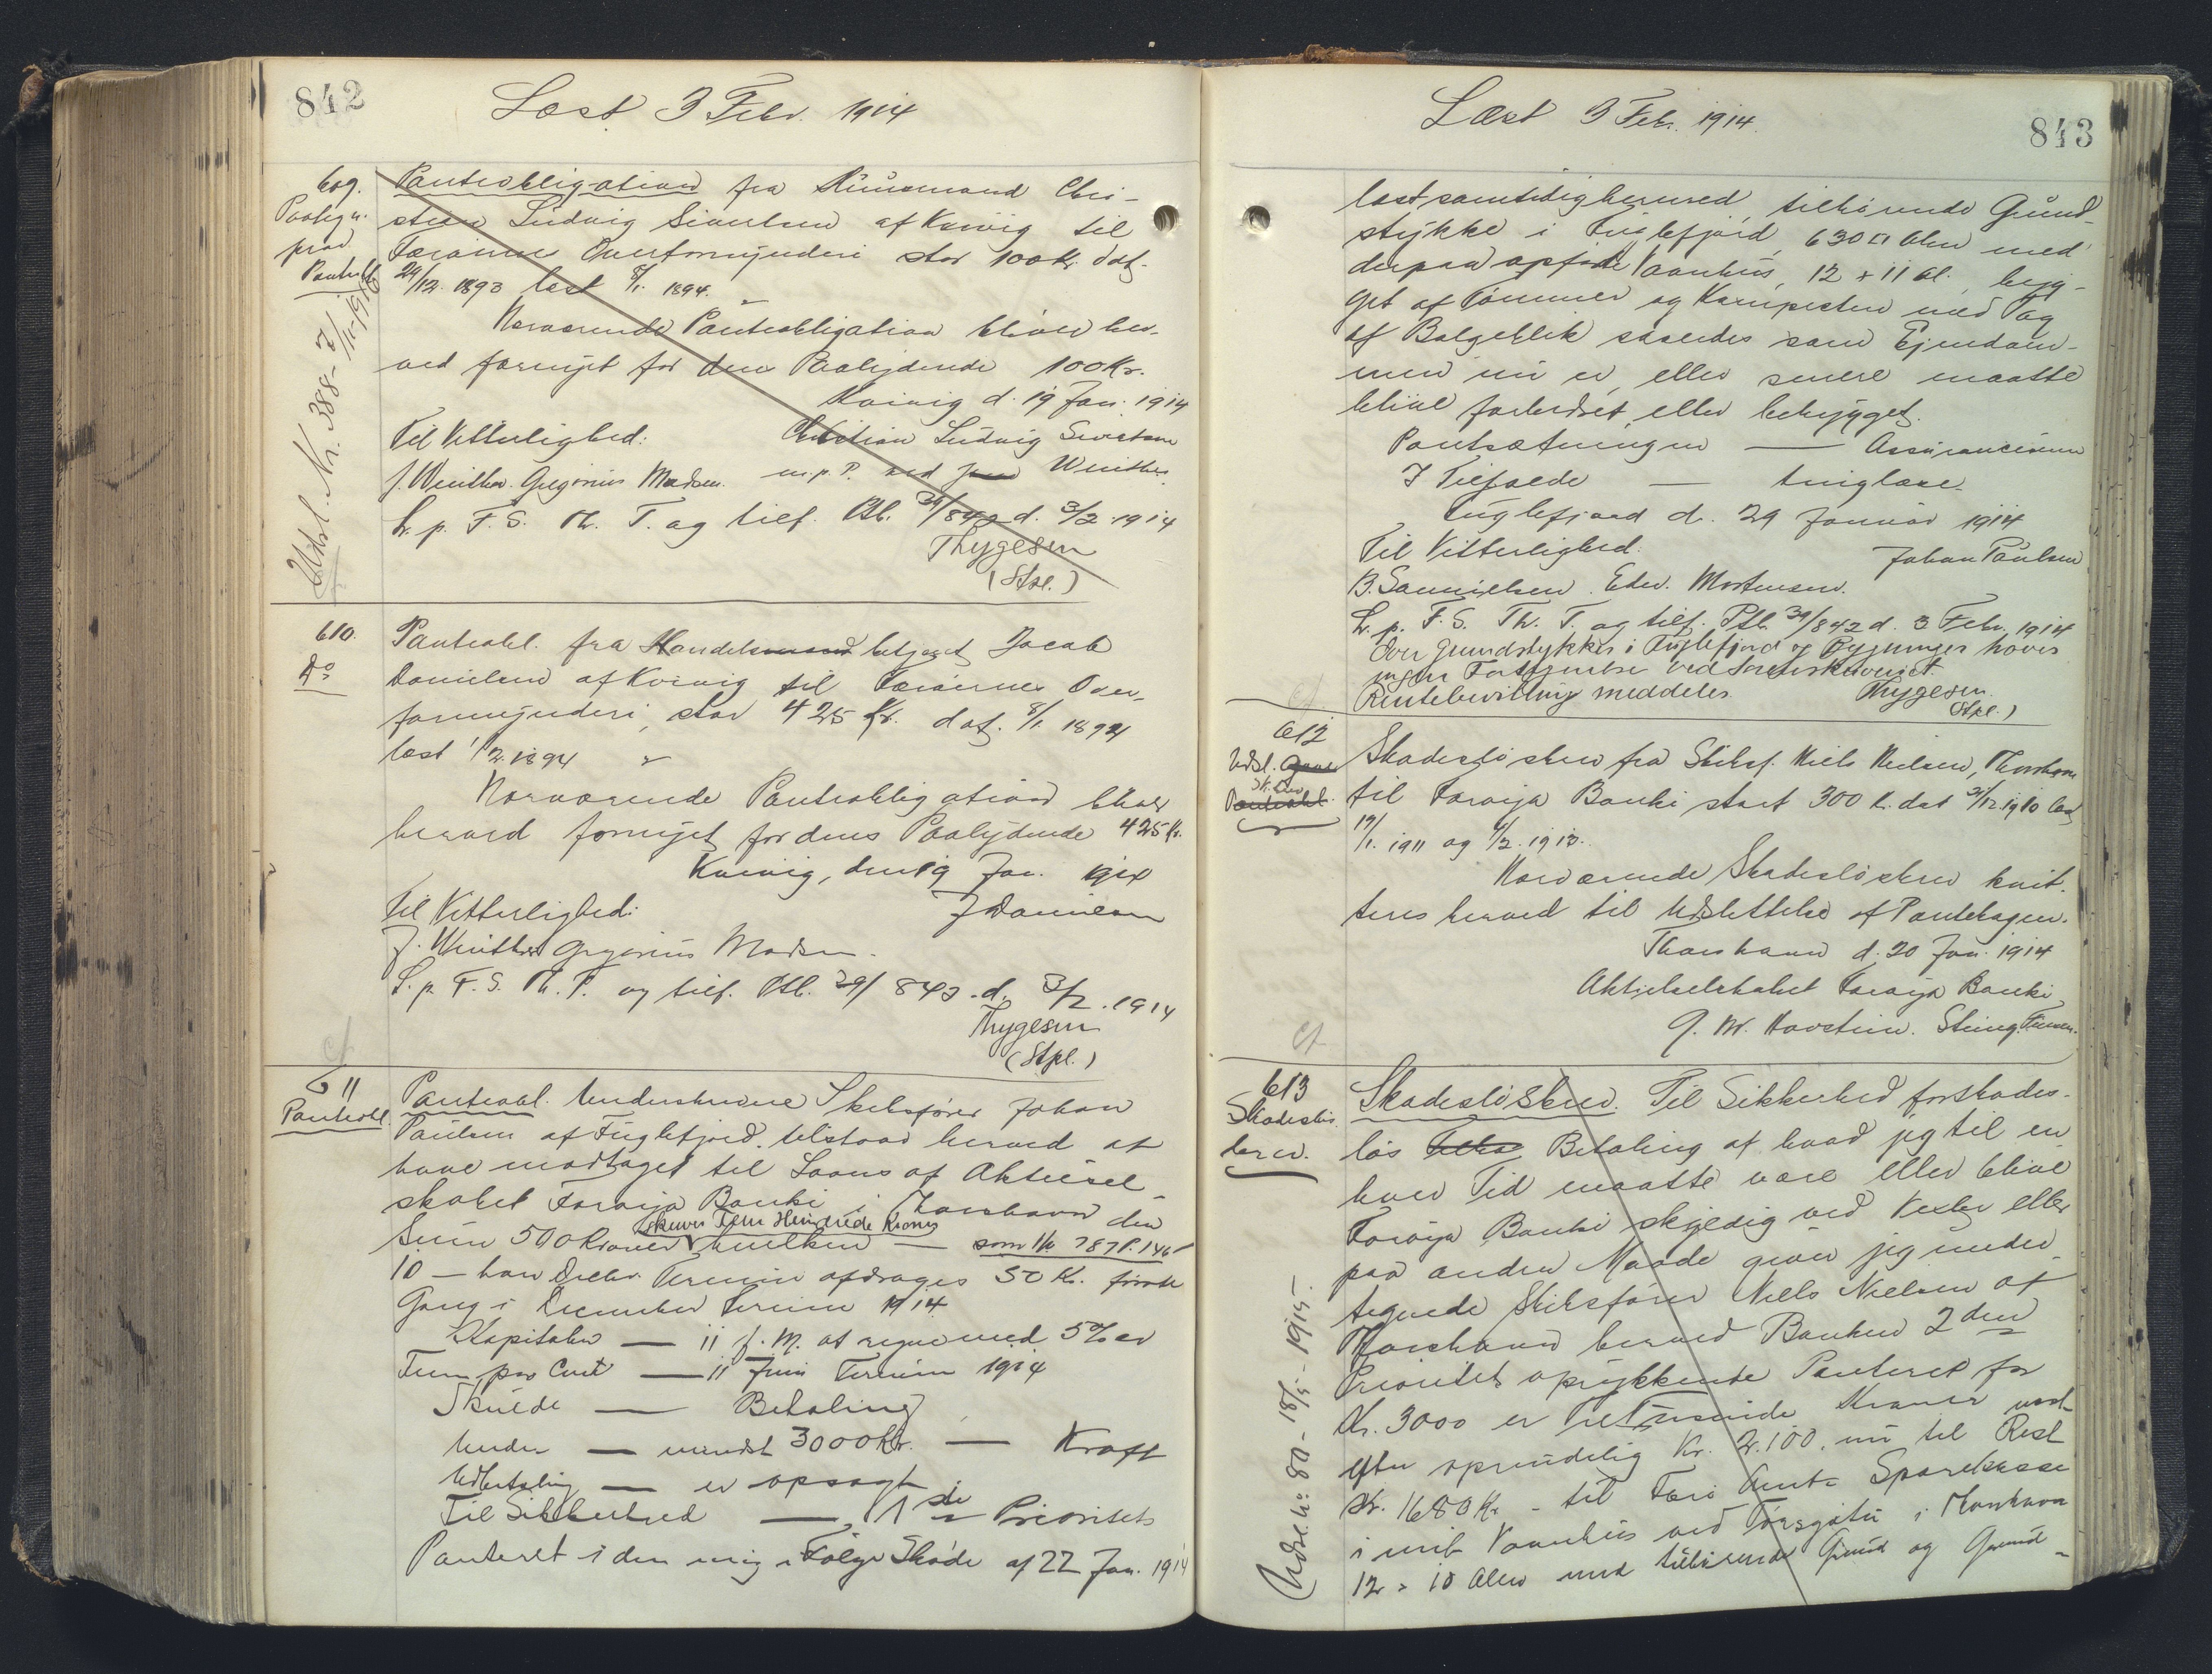 842
Læst 3 Febr. 1914
609.
Paategn.
paa
Panteobl.
Udsl. Nr. 388 - 7/11 - 1916
Panteobligation fra Huusmand Chri-
stian Ludvig Sivertsen af Kvivig til
Færøernes Overformynderi stor 100 Kr. dat.
29/12. 1893 læst 8/1. 1894.
Nærværende Panteobligation bliver her-
ved fornyet for dens Paalydende 100 Kr.
Kvivig d. 19 Jan. 1914
Til Vitterlighed: Christian Ludvig Sivertsen
J. Winther. Gregorius Madsen. m. p. P. ved J Winther
L. p. F. S. Th. T. og tilf. Ptb. 29/842 d. 3/2 1914
Thygesen
(Stpl.)
610.
Do
Panteobl. fra Handelsmand betjent Jacob
Danielsen af Kvivig til Færøernes Over-
formynderi, stor 425 Kr. dat. 8/1. 1894
læst 1/2. 1894
Nærværende Panteobligation bliver
herved fornyet for dens Paalydende 425 Kr.
Kvivig, den 19 Jan. 1914
Til Vitterlighed: J Danielsen
J. Winther Gregorius Madsen.
L. p. F. S. Th. T. og tilf. Ptb. 29/842 d. 3/2. 1914
Thygesen
(Stpl.)
611
Panteobl.
Panteobl. Underskrevne Skibsfører Johan
Paulsen af Fuglefjord tilstaar herved at
have modtaget til Laans af Aktiesel-
skabet Førøja Banki i Thorshavn den
skriver Fem Hundrede Kroner
Sum 500 Kroner hvilken — som No 787 P. 146
10 — hver Decbr. Termin afdrages 50 Kr. første
Gang i December Termin 1914
Kapitalen — 11 f. M. at regne med 5% er
Fem pro Cent — 11 Juni Termin 1914
Skulde — Betaling
Under — mindst 3000 Kr. — Kraft
Udbetaling — er opsagt
Til Sikkerhed — 1ste Prioritets
Panteret i den mig i Følge Skøde af 22 Jan. 1914
Læst 3 Febr. 1914.
843
læst samtidig hermed tilhørende Grund-
stykke i Fuglefjord, 630 □ Alen med
derpaa opførte Vaanhus, 12 x 11 Al., byg-
get af Tømmer og Kampesten med Tag
af Bølgeblik saaledes som Ejendom-
men nu er, eller senere maatte
blive forbedret eller bebygget.
Pantsætningen — Assurancesum
I Tilfælde — tinglæse.
Fuglefjord d. 29 Januar 1914
Til Vitterlighed: Johan Paulsen
B. Samuelsen. Edw. Mortensen.
L. p. F. S. Th. T. og tilf. Ptb. 29/842 d. 3 Febr. 1914
Over Grundstykker i Fuglefjord og Bygninger haves
ingen Fortegnelse ved Sorenskriveriet.
Rentebevilling meddeles. Thygesen.
Stpl.)
612
Udsl.
Sk. brev
Panteobl.
Skadesløsbrev fra Skibsf. Niels Nielsen, Thorshavn
til Førøja Banki stort 300 K. dat 31/12 1910 læst
19/1. 1911 og 4/2. 1913.
Nærværende Skadesløsbrev kvit-
teres herved til Udslettelse af Pantebogen.
Thorshavn d. 20 Jan. 1914
Aktieselskabet Førøja Banki
Sting.
613
Skadesløs
brev.
Udsl. Nr: 80 - 18/5 - 1915.
Skadesløsbrev. Til Sikkerhed for skades-
løs Betaling af hvad jeg til en
hver Tid maatte være eller blive
Førøja Banki skyldig ved Vexler eller
paa anden Maade giver jeg under-
tegnede Skibsfører Niels Nielsen af
Thorshavn herved Banken 2den
Prioritets oprykkende Panteret for
Kr. 3000 er Tre Tusinde Kroner næst
efter oprindelig Kr. 2.100. nu til Rest
Kr. 1680 Kr. - til Færø Amts Sparekasse
i mit Vaanhus ved Torsgøtu i Thorshavn
12 x 10 Alen med tilhørende Grund og Grund-